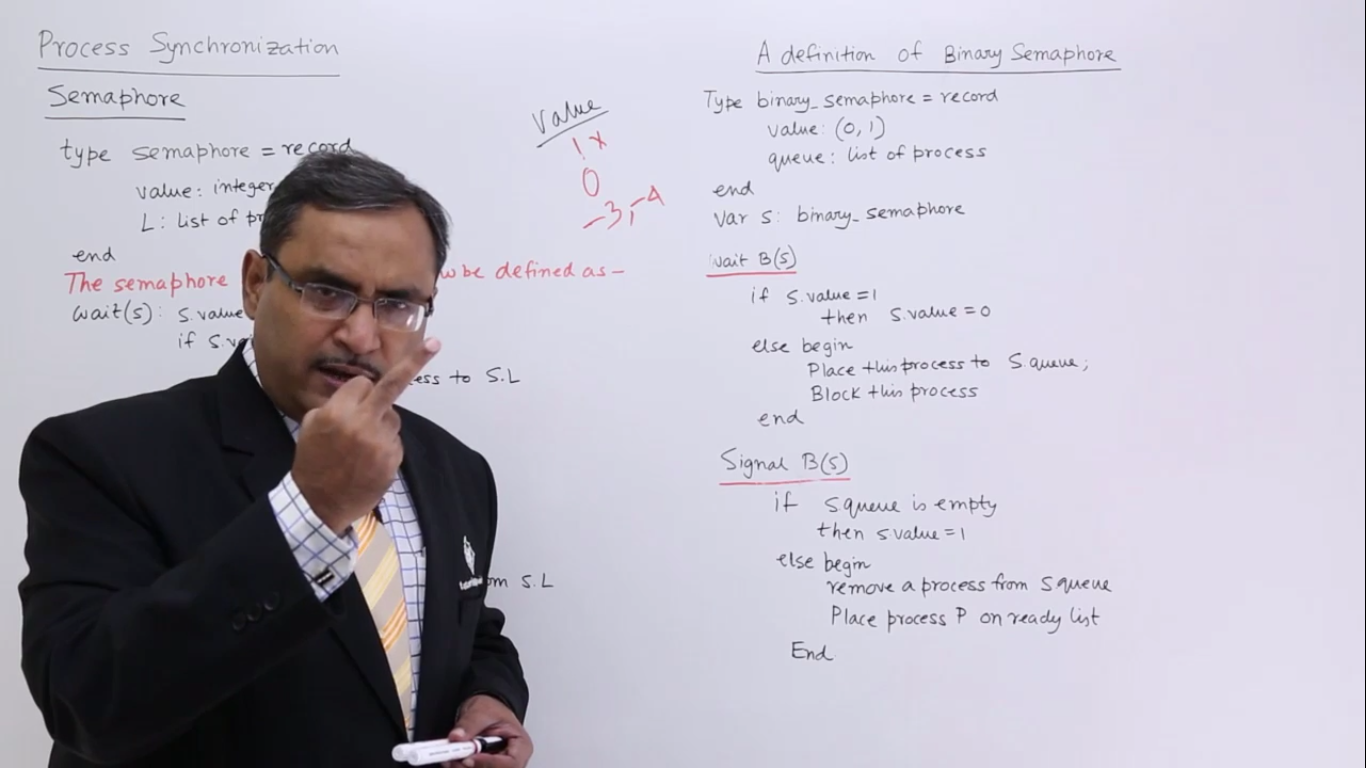 Process Synchronization
Semaphore
type semaphore = record
value: integer
L: list of
end
The semaphore be defined as –
wait(s): s.value
if
to S.L
S.L
value
1 x
0
-3, -4
A definition of Binary Semaphore
Type binary_semaphore = record
value: (0, 1)
queue: list of process
end
Var s: binary_semaphore
wait B(s)
if s.value = 1
then s.value = 0
else begin
Place this process to S.queue;
Block this process
end
Signal B(s)
if s queue is empty
then s.value = 1
else begin
remove a process from s queue
Place process P on ready list
End